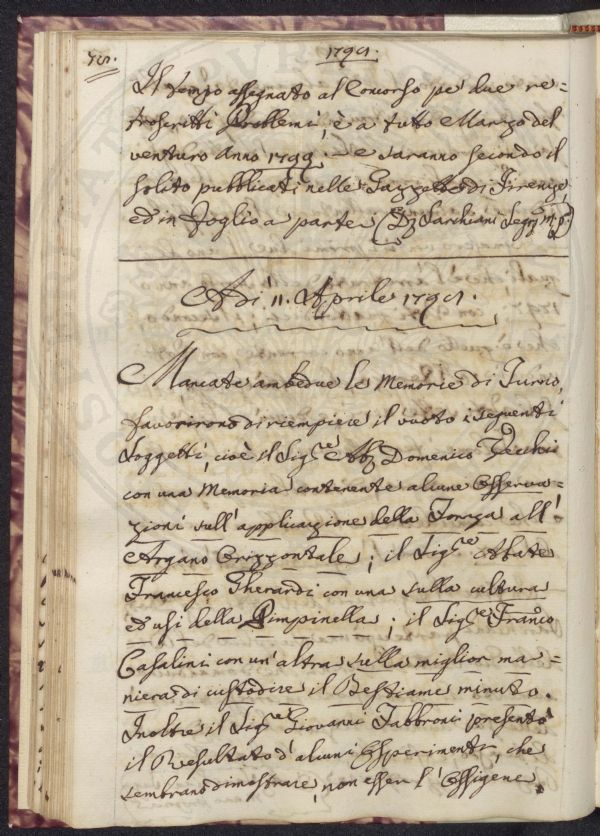 1798.
Il tempo assegnato al Concorso pe' due re=
troscritti Problemi, è a tutto Marzo del
venturo Anno 1799. e saranno secondo il
solito pubblicati nelle Gazzette di Firenze,
ed in foglio a parte; Sarchiani Segr.
Adì 11. Aprile 1798.
Mancate ambedue le Memorie di Turno,
favorirono di riempiere il vuoto i seguenti
Soggetti, cioè il Sig.re Domenico Vecchi
con una Memoria contenente alcune Osserva=
zioni sull'applicazione della Forza all'
Argano Orizzontale; il Sig.re Abate
Francesco Gherardi con una sulla cultura
ed usi della Pimpinella; il Sig.re Franc.o
Casalini con un'altra sulla miglior ma=
niera di custodire il Bestiame minuto.
Inoltre il Sig.re Giovanni Fabbroni presentò
il Resultato d'alcuni Esperimenti, che
sembrano dimostrare, non esser l'Ossigene